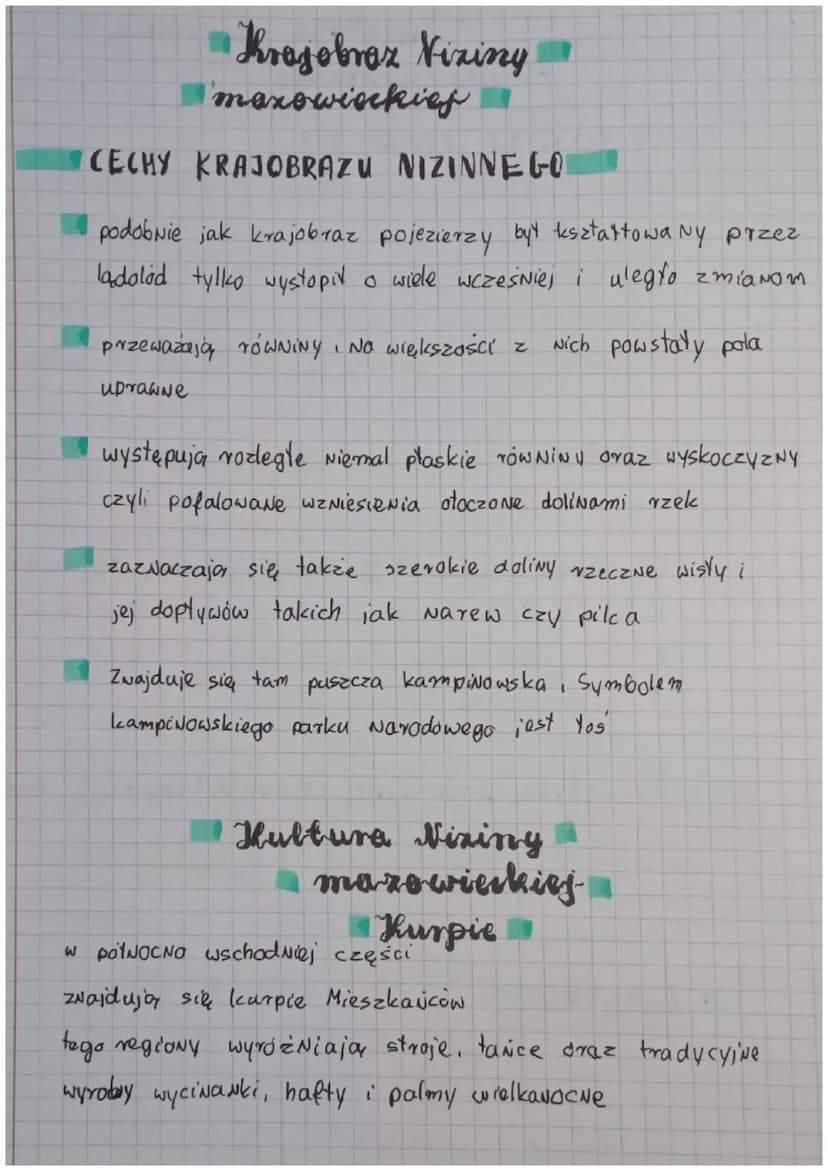 Krajobraz Niziny
mazowieckiej
CECHY KRAJOBRAZU NIZINNEGO
podobnie jak krajobraz pojezierzy był kształtowany przez
lądolód tylko wystopił o wiele wcześniej i uległo zmianom
przeważają równiny, na większości z nich powstały pola
uprawne
występują rozległe niemal płaskie równiny oraz wyskoczyzny
czyli pofalowane wzniesienia otoczone dolinami rzek
zaznaczają się także szerokie doliny rzeczne wisły i
jej dopływów takich jak narew czy pilca
Znajduje się tam puszcza kampinowska, Symbolem
kampinowskiego parku narodowego jest łoś
Kultura Niziny
mazowieckiej-
Kurpie
w północno wschodniej części
znajdują się kurpie Mieszkańców
tego regiony wyróżniają stroje, tańce oraz tradycyjne
wyroby wycinanki, hafty i palmy wielkanocne